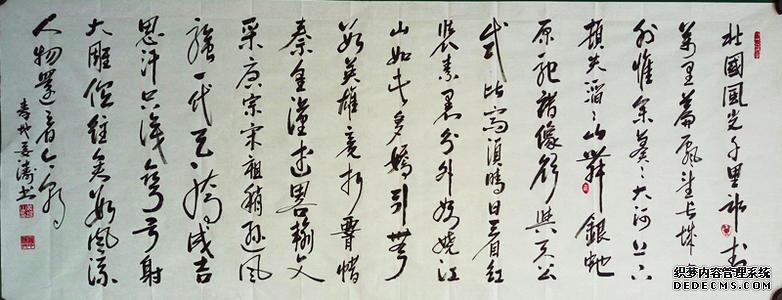 北國風光千里冰封
萬里雪飄望长城
外惟余莽々大河上下
頓失滔々山舞銀蛇
原馳蜡像欲與天公
試比高須晴日看紅
装素裹分外妖嬈江
山如此多嬌引無
数英雄竞折腰惜
秦皇漢武略輸文
采唐宗宋祖稍遜風
骚一代天骄成吉
思汗只識彎弓射
大雕俱往矣数風流
人物還看今朝
织梦内容管理系统
DEDECMS.COM